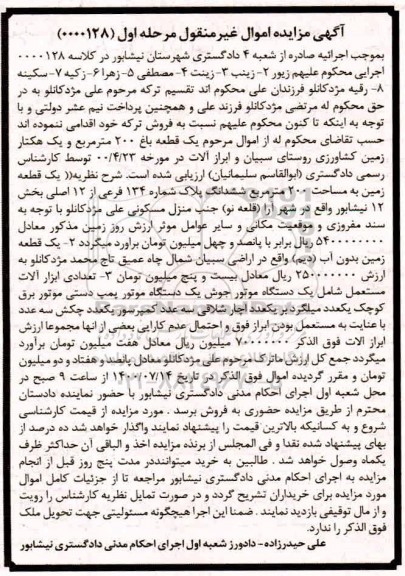 آگهی مزایده اموال غیرمنقول مرحله اول (۰۰۰۰۱۲۸)
بموجب اجرائیه صادره از شعبه ۴ دادگستری شهرستان نیشابور در کلاسه ۰۰۰۰۱۲۸
اجرایی محکوم علیهم زیور ۲- زینب ۳- زینت ۴- مصطفی ۵- زهرا ۶- زکیه ۷- سکینه
۸- رقیه مژدکانلو فرزندان علی محکوم اند تقسیم ترکه مرحوم علی مژدکانلو به در
حق محکوم له مرتضی مژدکانلو فرزند علی و همچنین پرداخت نیم عشر دولتی و با
توجه به اینکه تا کنون محکوم علیهم نسبت به فروش ترکه خود اقدامی ننموده اند
حسب تقاضای محکوم له از اموال مرحوم یک قطعه باغ ۲۰۰ مترمربع و یک هکتار
زمین کشاورزی روستای سبیان و ابراز آلات در مورخه ۰۰/۴/۲۳ توسط کارشناس
رسمی دادگستری (ابوالقاسم سلیمانیان) ارزیابی شده است. شرح نظریه(( یک قطعه
زمین به مساحت ۲۰۰ مترمربع ششدانگ پلاک شماره ۱۳۴ فرعی از ۱۲ اصلی بخش
۱۲ نیشابور واقع در شهر آرا (قلعه نو) جنب منزل مسکونی علی مژدکانلو با توجه به
سند مفروزی و موقعیت مکانی و سایر عوامل موثر ارزش روز زمین مذکور معادل
۵۴۰۰۰۰۰۰۰۰ ریال برابر با پانصد و چهل میلیون تومان براورد میگردد ۲- یک قطعه
زمین بدون آب (دیم) واقع در اراضی سبیان شمال چاه عمیق تاج محمد مژدکانلو به
ارزش ۲۵۰۰۰۰۰۰۰ ریال معادل بیست و پنج میلیون تومان ۳- تعدادی ابزار آلات
مستعمل شامل یک دستگاه موتور جوش یک دستگاه موتور پمپ دستی موتور برق
کوچک یکعدد میلگردبر یکعدد آچار شلاقی سه عدد کمپرسور یکعدد چکش سه عدد
با عنایت به مستعمل بودن ابراز فوق و احتمال عدم کارایی بعضی از آنها مجموعا ارزش
ابراز آلات فوق الذکر ۷۰۰۰۰۰۰۰ میلیون ریال معادل هفت میلیون تومان براورد
میگردد جمع کل ارزش ماترک مرحوم علی مژدکانلو معادل پانصد و هفتاد و دو میلیون
تومان و مقرر گردیده اموال فوق الذکر در تاریخ ۱۴۰۰/۰۷/۱۴ از ساعت ۹ صبح در
محل شعبه اول اجرای احکام مدنی دادگستری نیشابور با حضور نماینده دادستان
محترم از طریق مزایده حضوری به فروش برسد . مورد مزایده از قیمت کارشناسی
شروع و به کسانیکه بالاترین قیمت را پیشنهاد نمایند واگذار خواهد شد ده درصد از
بهای پیشنهاد شده نقدا و فی المجلس از برنده مزایده اخذ و الباقی آن حداکثر ظرف
یکماه وصول خواهد شد . طالبین به خرید میتوانند در مدت پنج روز قبل از انجام
مزایده به اجرای احکام مدنی دادگستری نیشابور مراجعه تا از جزئیات کامل اموال
مورد مزایده برای خریداران تشریح گردد و در صورت تمایل نظریه کارشناس را رویت
و از مال توقیفی بازدید نمایند . ضمنا این اجرا هیچگونه مسئولیتی جهت تحویل ملک
فوق الذکر را ندارد.
علی حیدرزاده - دادورز شعبه اول اجرای احکام مدنی دادگستری نیشابور